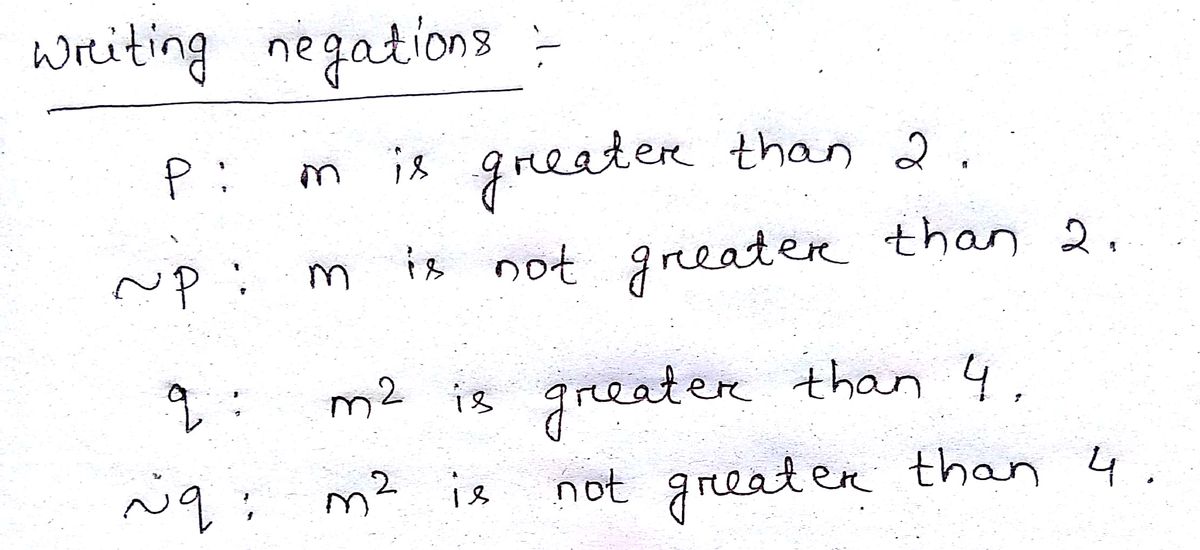 Writing negations :-
p : m is greater than 2 .
~p : m is not greater than 2 .
q : m² is greater than 4 .
~q : m² is not greater than 4 .